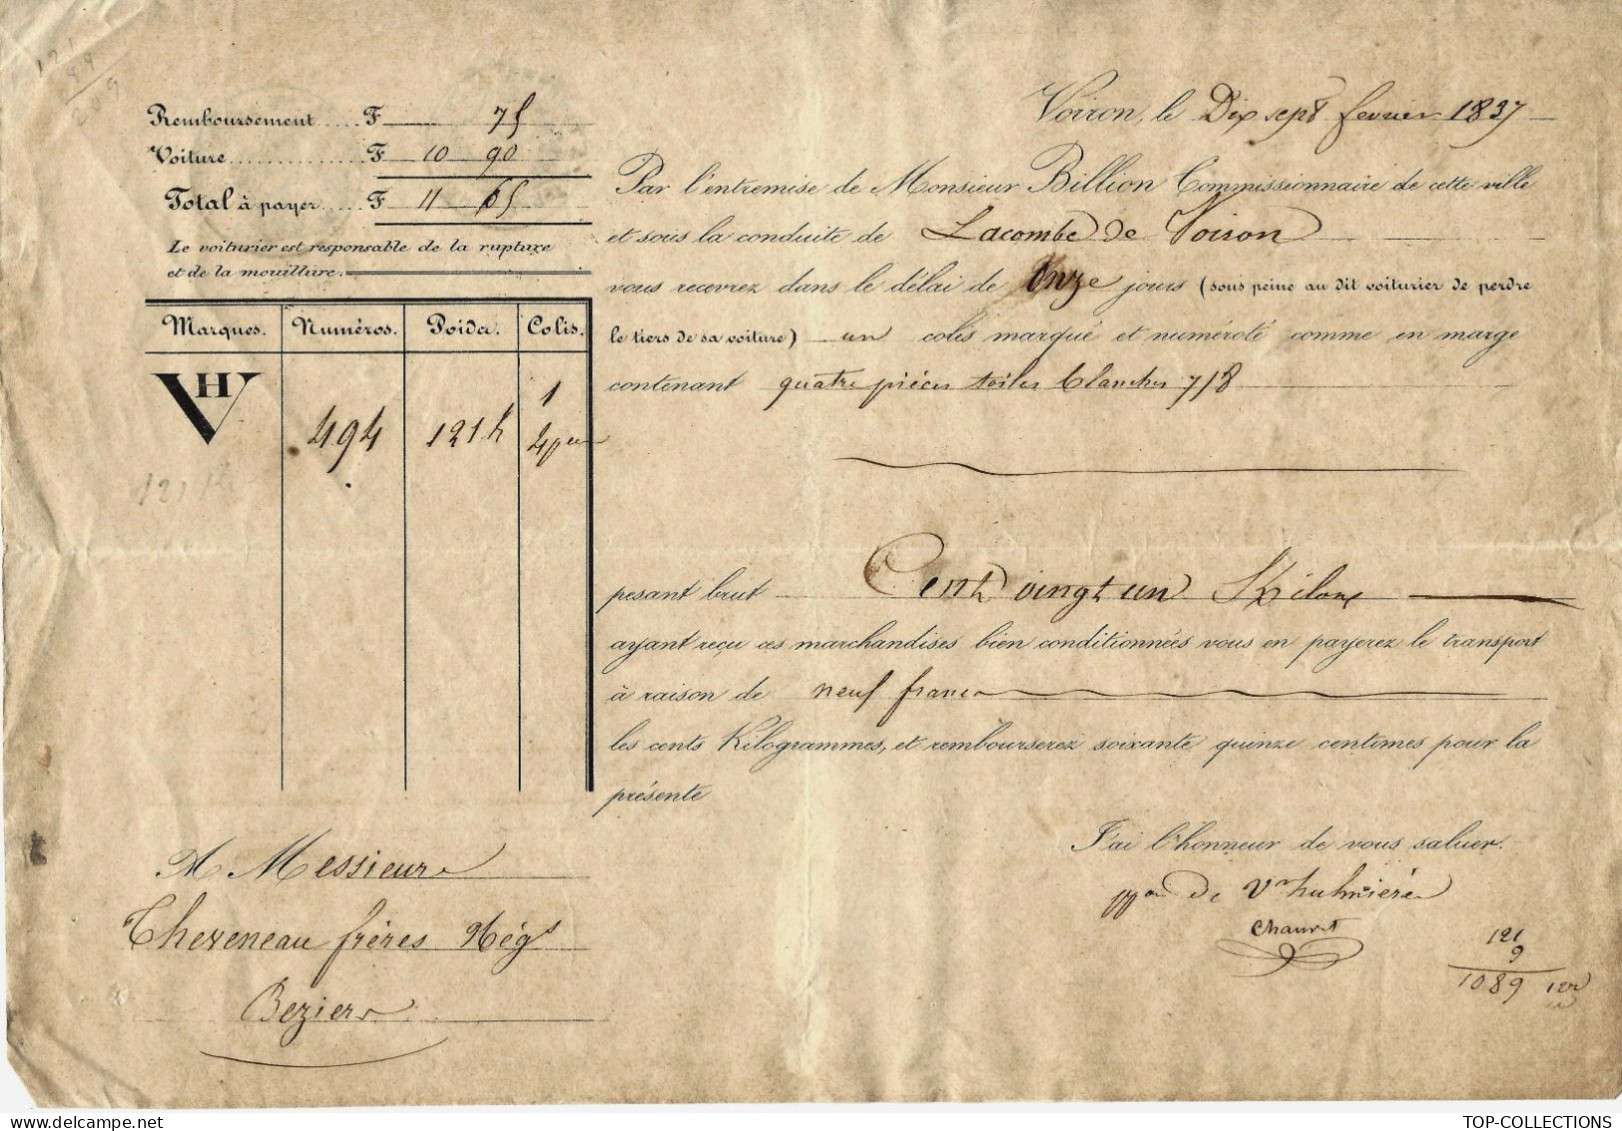 121
Remboursement..... F 75
Voiture............. F 10 90
Total à payer..... F 11 65
Le voiturier est responsable de la rupture
et de la mouillure.
Marques. Numéros. Poids. Colis.
VH 494 121 k 1
121 k
Voiron, le Dix sept fevrier 1837
Par l'entremise de Monsieur Billion Commissionnaire de cette ville
et sous la conduite de Lacombe de Voiron
vous recevrez dans le délai de Onze jours (sous peine au dit voiturier de perdre
le tiers de sa voiture) un colis marqué et numéroté comme en marge
contenant quatre pièces toiles blanches 7/8
pesant brut Cent vingt un Kilos
ayant reçu ces marchandises bien conditionnées vous en payerez le transport
à raison de neuf francs
les cents Kilogrammes, et rembourserez soixante quinze centimes pour la
présente
J'ai l'honneur de vous saluer.
A Messieurs
Theveneau frères Nég.ts
Beziers
ppon de
Chauvet
121
9
1089
TOP-COLLECTIONS